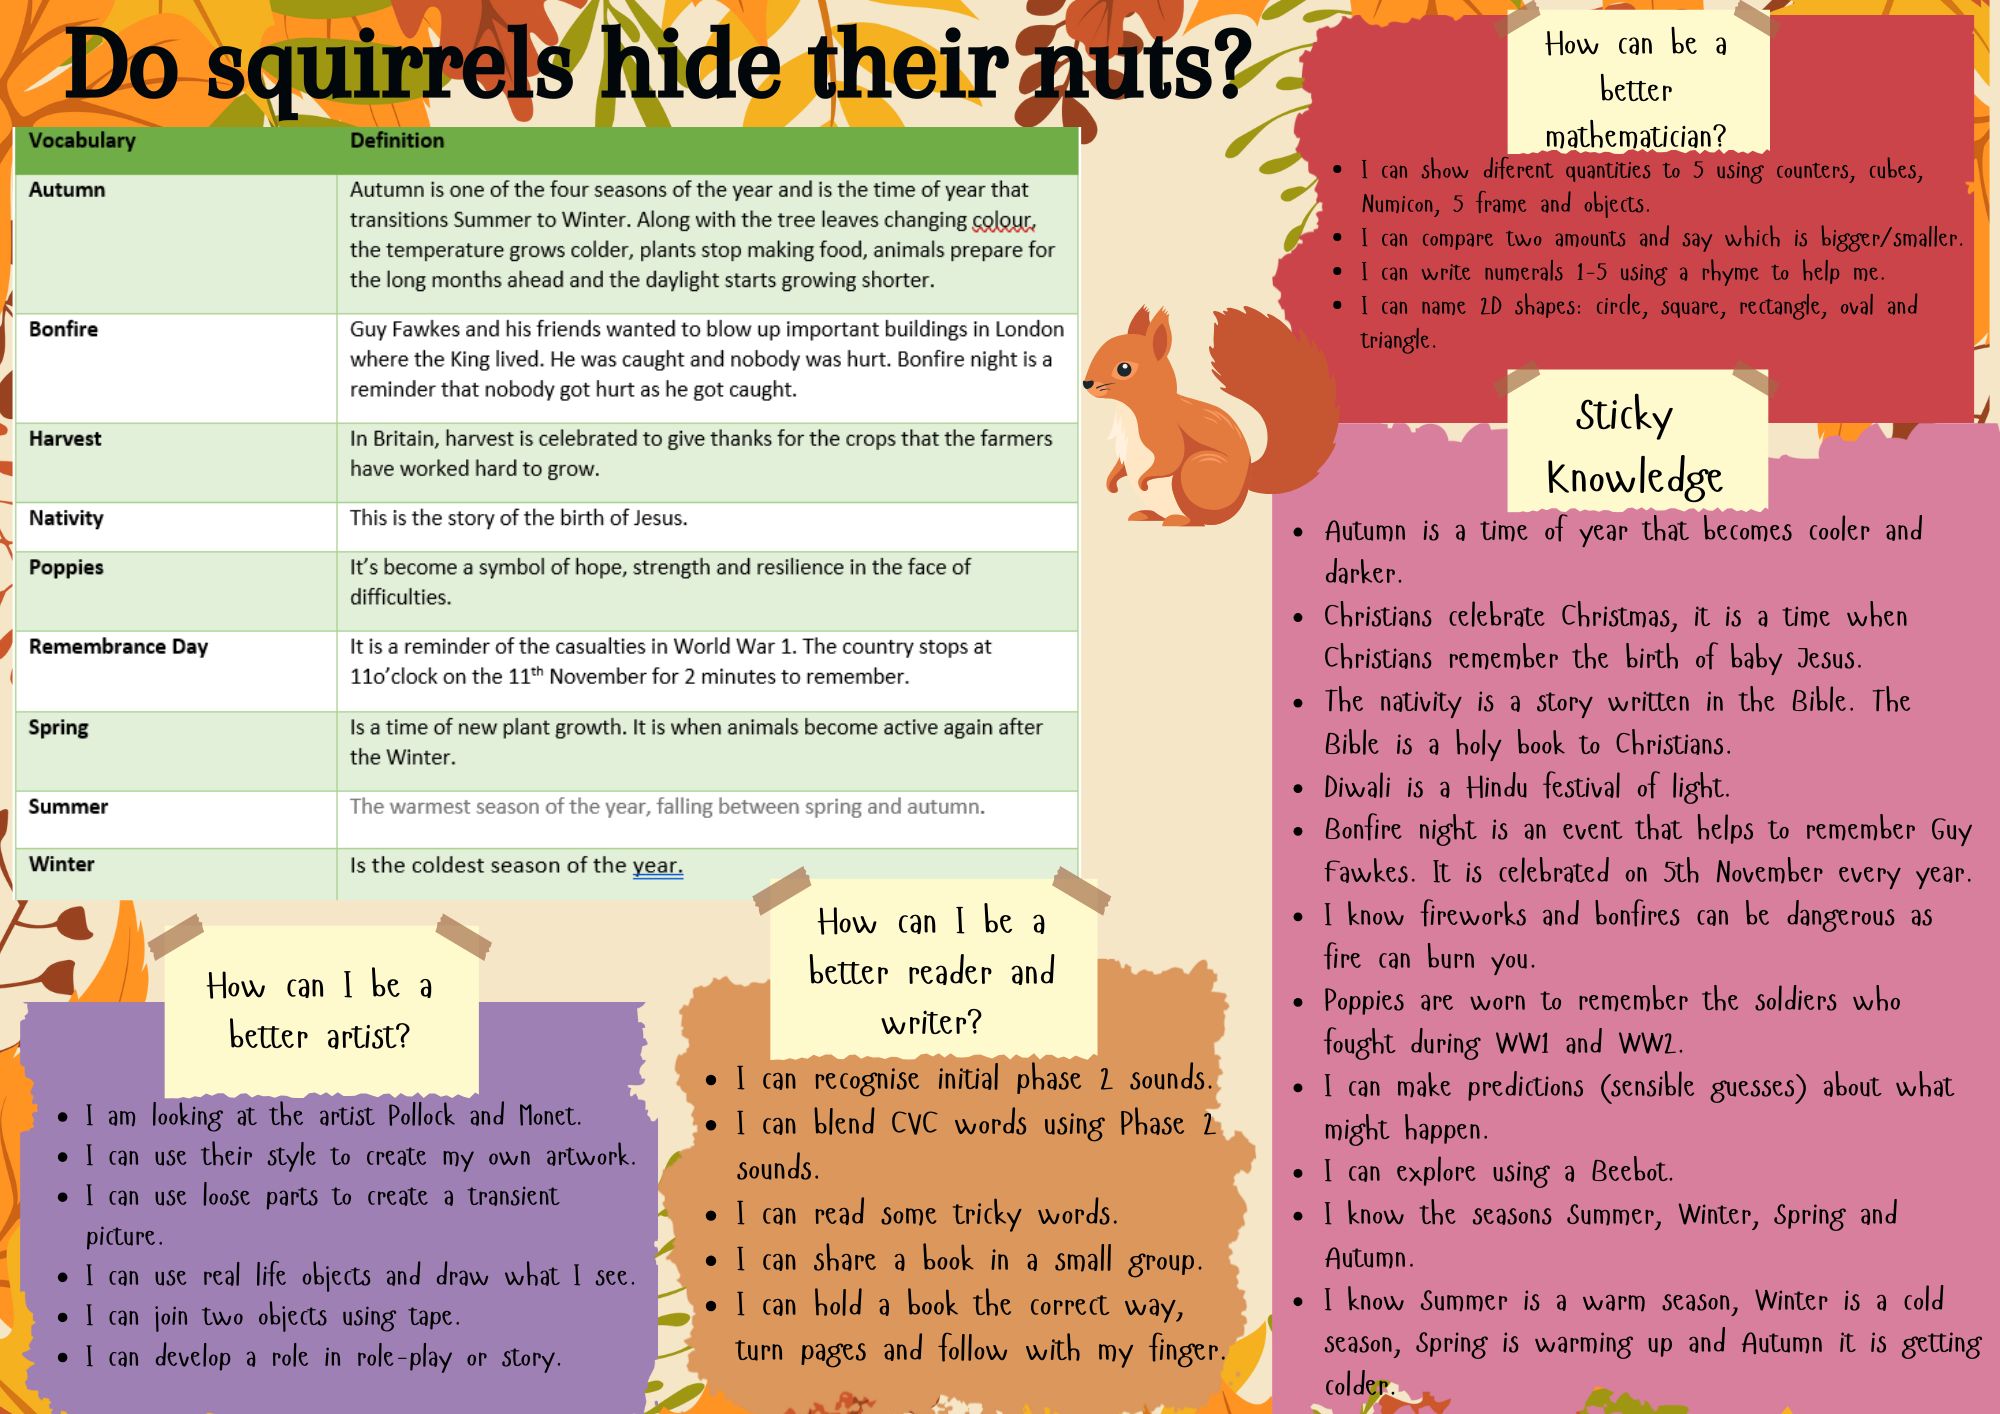 Do squirrels hide their nuts?
Vocabulary Definition
Autumn Autumn is one of the four seasons of the year and is the time of year that
transitions Summer to Winter. Along with the tree leaves changing colour,
the temperature grows colder, plants stop making food, animals prepare for
the long months ahead and the daylight starts growing shorter.
Bonfire Guy Fawkes and his friends wanted to blow up important buildings in London
where the King lived. He was caught and nobody was hurt. Bonfire night is a
reminder that nobody got hurt as he got caught.
Harvest In Britain, harvest is celebrated to give thanks for the crops that the farmers
have worked hard to grow.
Nativity This is the story of the birth of Jesus.
Poppies It’s become a symbol of hope, strength and resilience in the face of
difficulties.
Remembrance Day It is a reminder of the casualties in World War 1. The country stops at
11o’clock on the 11th November for 2 minutes to remember.
Spring Is a time of new plant growth. It is when animals become active again after
the Winter.
Summer The warmest season of the year, falling between spring and autumn.
Winter Is the coldest season of the year.
How can be a
better
mathematician?
• I can show diferent quantities to 5 using counters, cubes,
Numicon, 5 frame and objects.
• I can compare two amounts and say which is bigger/smaller.
• I can write numerals 1-5 using a rhyme to help me.
• I can name 2D shapes: circle, square, rectangle, oval and
triangle.
Sticky
Knowledge
• Autumn is a time of year that becomes cooler and
darker.
• Christians celebrate Christmas, it is a time when
Christians remember the birth of baby Jesus.
• The nativity is a story written in the Bible. The
Bible is a holy book to Christians.
• Diwali is a Hindu festival of light.
• Bonfire night is an event that helps to remember Guy
Fawkes. It is celebrated on 5th November every year.
• I know fireworks and bonfires can be dangerous as
fire can burn you.
• Poppies are worn to remember the soldiers who
fought during WW1 and WW2.
• I can make predictions (sensible guesses) about what
might happen.
• I can explore using a Beebot.
• I know the seasons Summer, Winter, Spring and
Autumn.
• I know Summer is a warm season, Winter is a cold
season, Spring is warming up and Autumn it is getting
colder.
How can I be a
better artist?
• I am looking at the artist Pollock and Monet.
• I can use their style to create my own artwork.
• I can use loose parts to create a transient
picture.
• I can use real life objects and draw what I see.
• I can join two objects using tape.
• I can develop a role in role-play or story.
How can I be a
better reader and
writer?
• I can recognise initial phase 2 sounds.
• I can blend CVC words using Phase 2
sounds.
• I can read some tricky words.
• I can share a book in a small group.
• I can hold a book the correct way,
turn pages and follow with my finger.